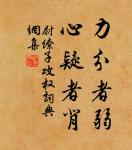 力分者弱
心疑者背
尉繚子攻权詞典
網集